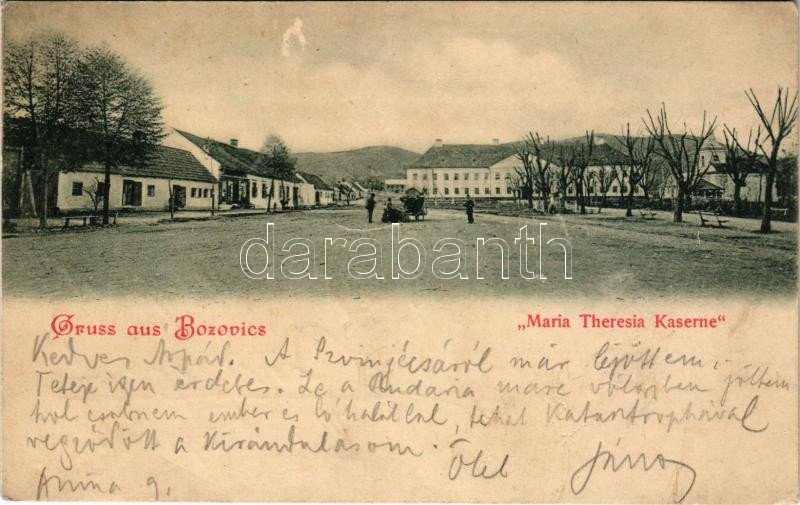 darabanth
Gruss aus Bozovics
„Maria Theresia Kaserne“
Kedves Árpád. A Szvinyécsáról már lejöttem,
Teteje igen érdekes. Le a Rudăria mare völgyben jöttem
hol csaknem ember és ló halállal, tehát Katastrophával
végződött a Kirándulásom.
Ölel János
Anina 9.